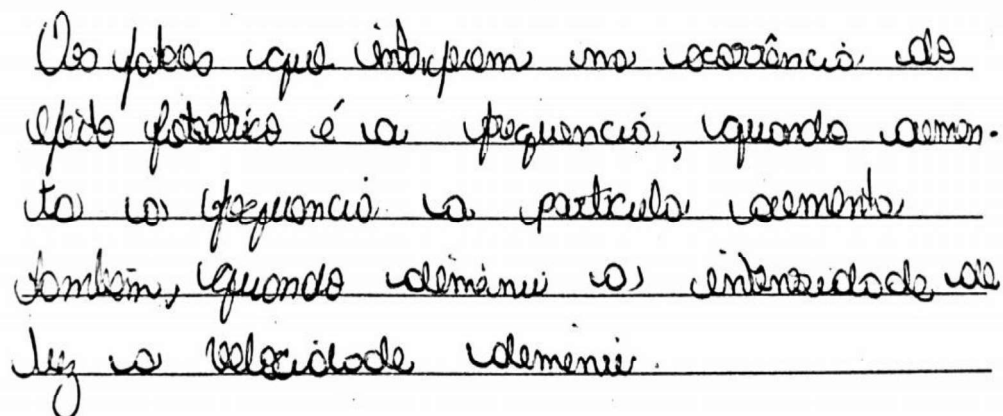 Os fatores que interferem na ocorrência do
efeito fotoetrico é a frequencia, quando aumen-
ta a frequencia a particula aumenta
também, quando deminui a intensidade de
luz a velocidade deminui.